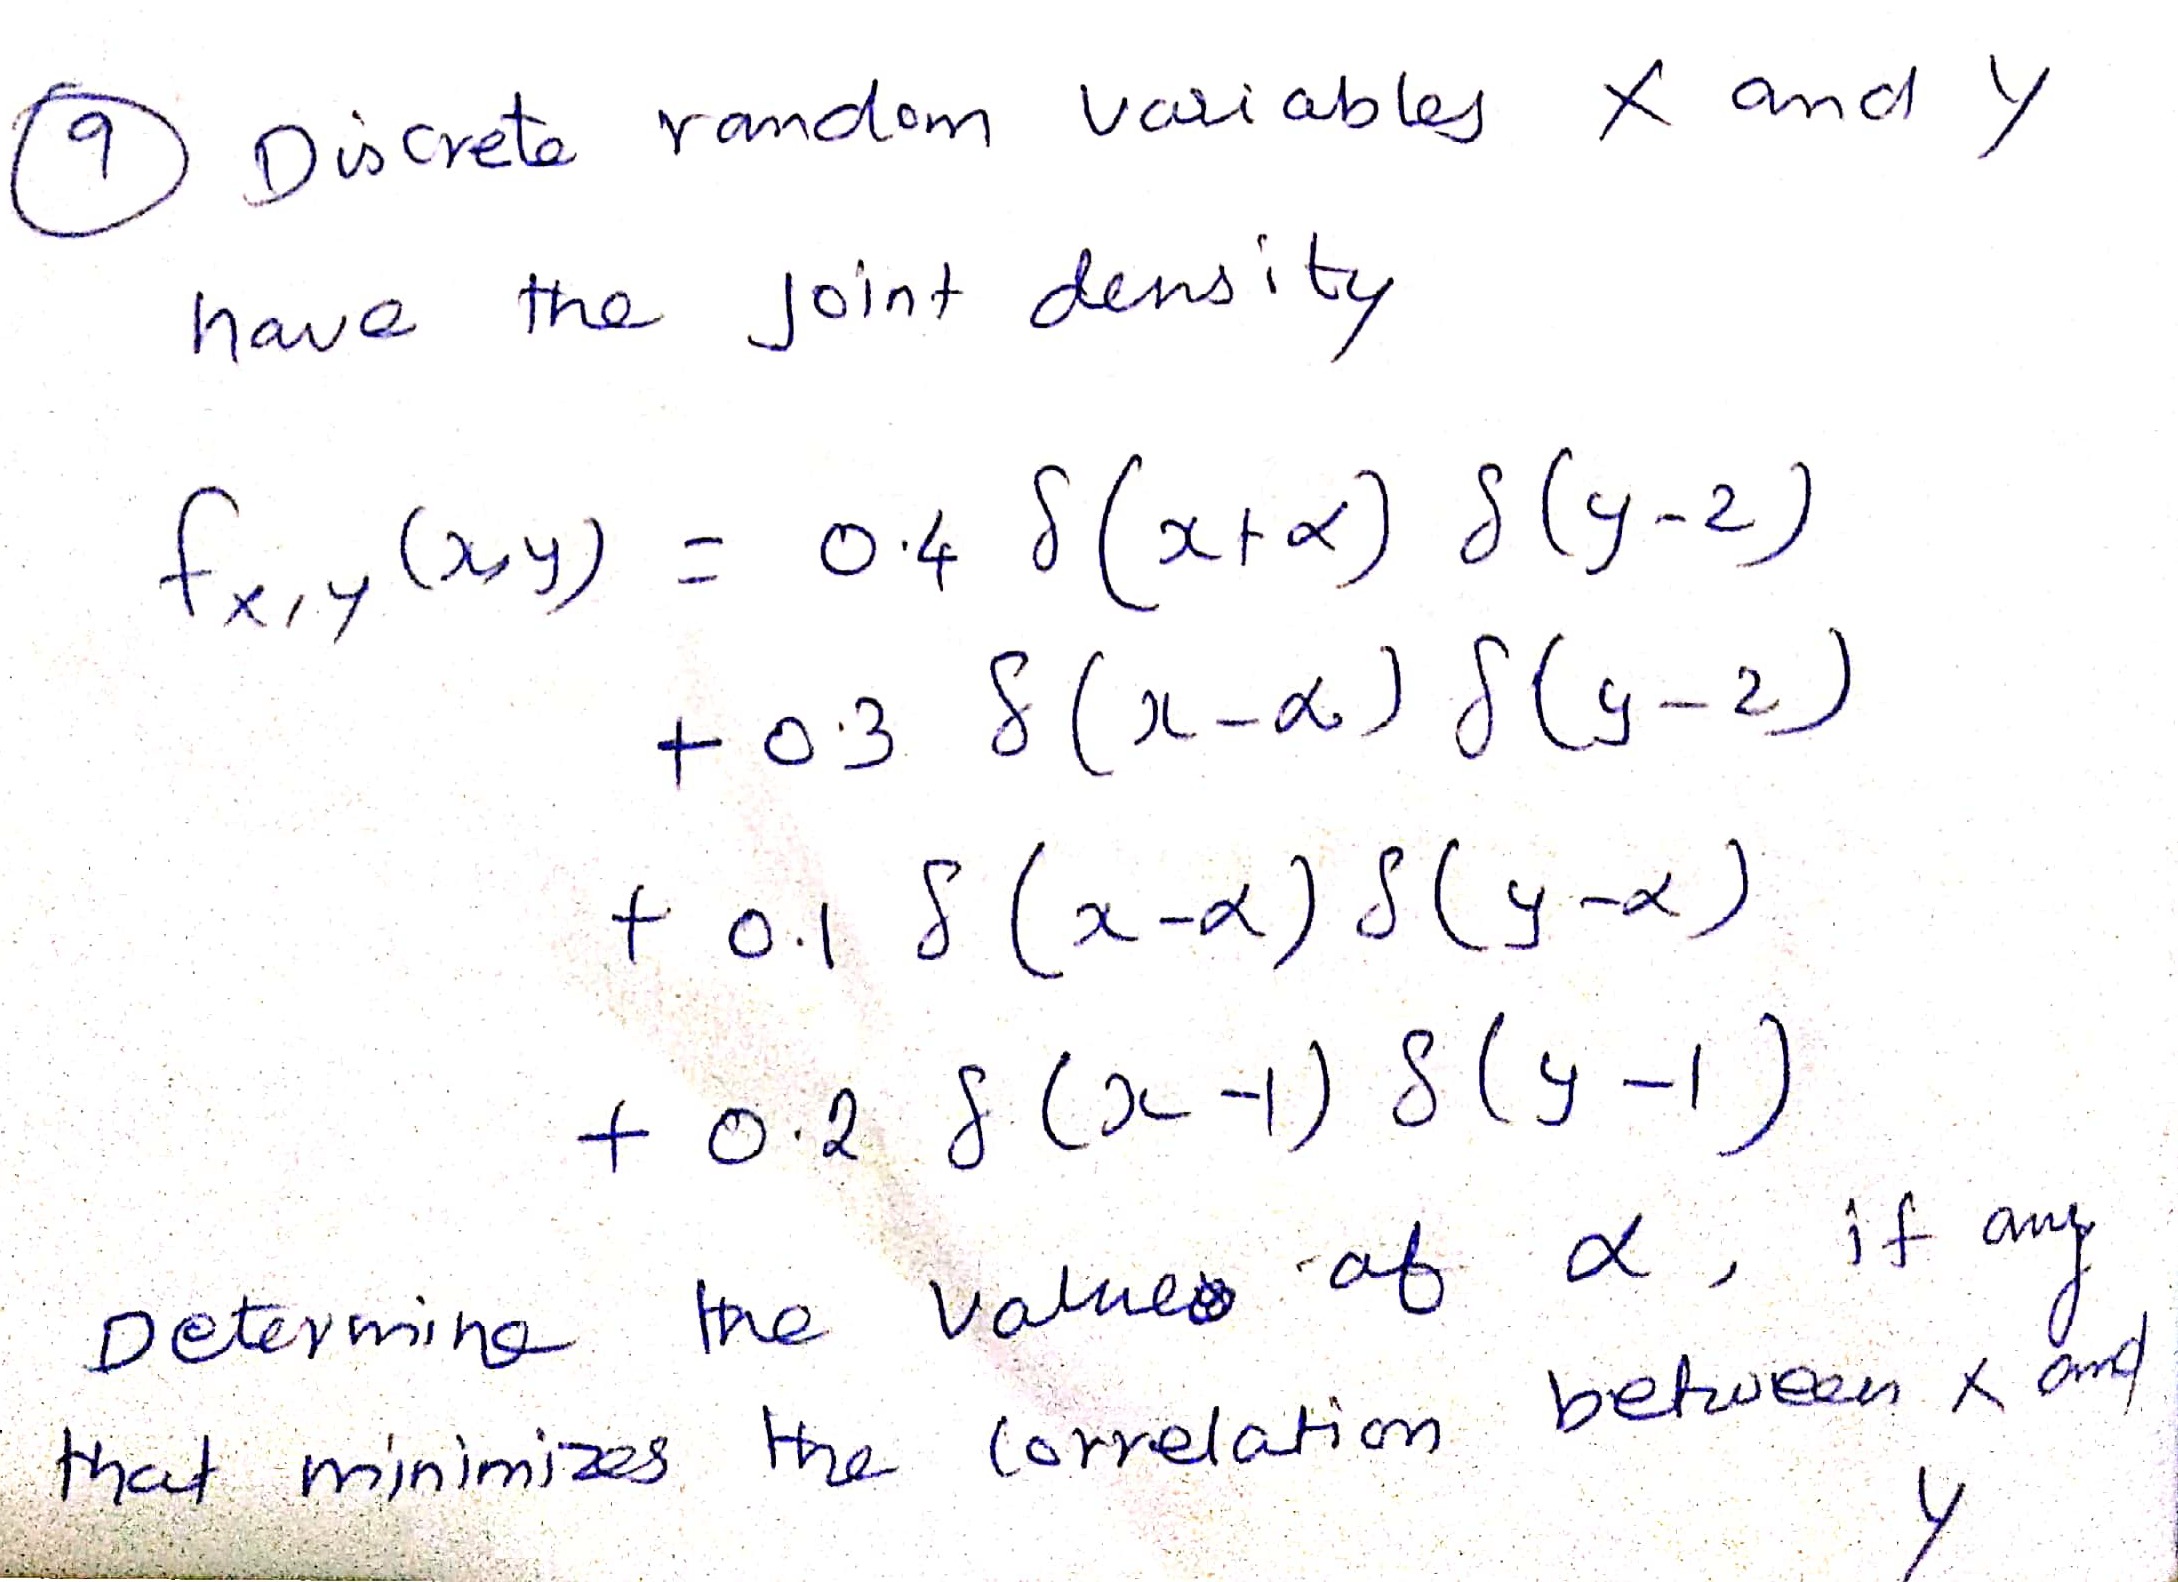 9 Discrete random variables X and Y
have the joint density
f_{X,Y}(x,y) = 0.4 δ(x+α) δ(y-2)
+ 0.3 δ(x-α) δ(y-2)
+ 0.1 δ(x-α) δ(y-α)
+ 0.2 δ(x-1) δ(y-1)
Determine the values of α, if any
that minimizes the correlation between X and
Y